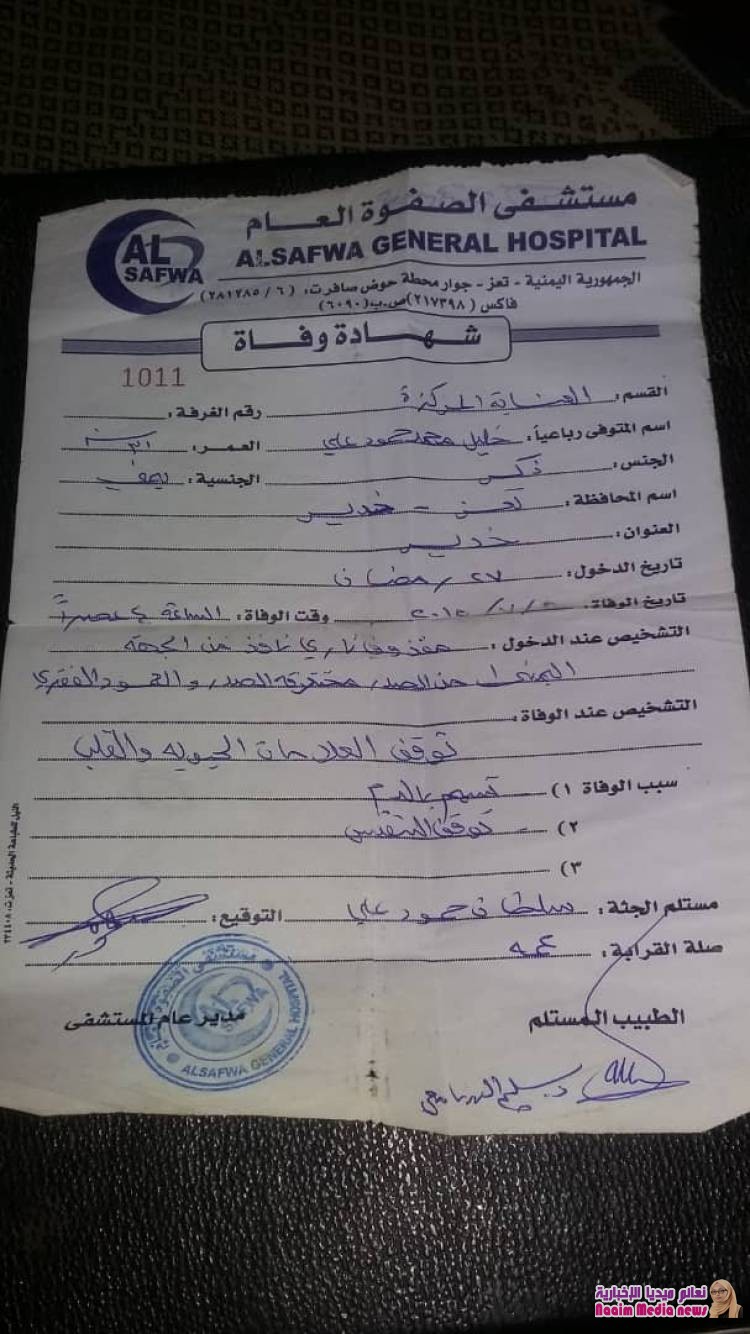 مستشفى الصفوة العام
AL SAFWA
ALSAFWA GENERAL HOSPITAL
الجمهورية اليمنية - تعز - جوار محطة حوض صافر ت: (٦ / ٢٨١٢٨٥)
فاكس (٢١٧٣٩٨) ص.ب (٦٠٩٠)
شهادة وفاة
1011
القسم: العناية المركزة رقم الغرفة:
اسم المتوفى رباعياً: خليل محمد حمود علي العمر: ٣١ سنة
الجنس: ذكر الجنسية: يمني
اسم المحافظة: تعز - خدير
العنوان: خدير
تاريخ الدخول: ٢٧ رمضان
تاريخ الوفاة: وقت الوفاة: الساعة عصراً
التشخيص عند الدخول: مقذوف ناري نافذ من الجهة
اليمنى من الصدر مخترقة الصدر والعمود الفقري
التشخيص عند الوفاة:
توقف العلامات الحيوية والقلب
سبب الوفاة ١) - تسمم بالدم
٢) - توقف التنفس
٣)
مستلم الجثة: سلطان حمود علي التوقيع:
صلة القرابة: عمه
الطبيب المستلم مدير عام المستشفى
ALSAFWA GENERAL HOSPITAL
د. سليم
نعائم ميديا الإخبارية
Naaim Media news